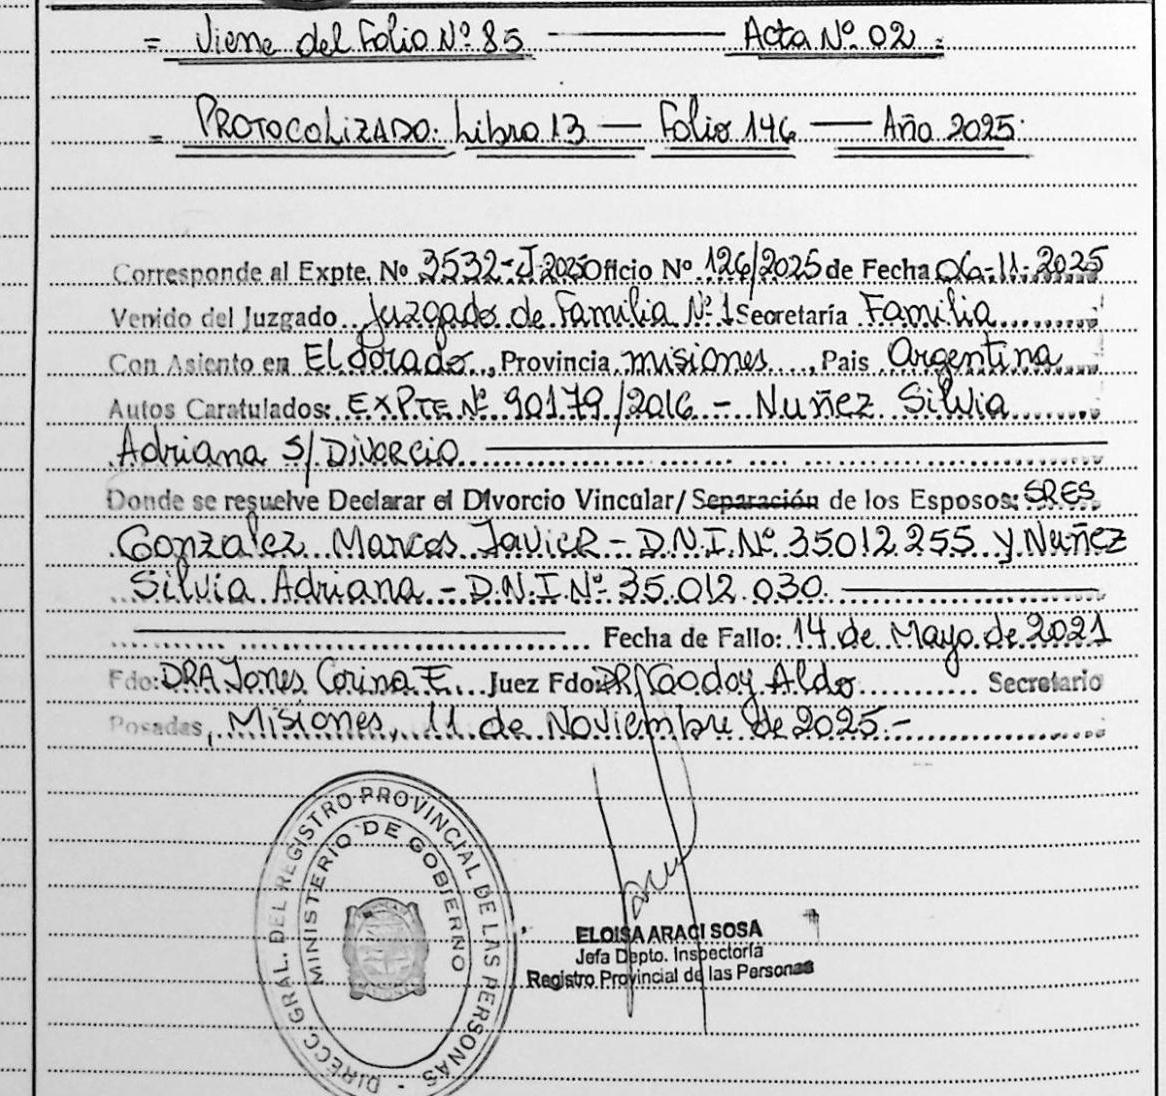 = Viene del Folio Nº 85 — Acta Nº 02 =
= PROTOCOLIZADO: Libro 13 — Folio 146 — Año 2025
Corresponde al Expte. Nº 3532-J-2025 Oficio Nº 126/2025 de Fecha 06-11-2025
Venido del Juzgado Juzgado de Familia Nº 1 Secretaría Familia
Con Asiento en Eldorado, Provincia misiones, Pais Argentina
Autos Caratulados: EXPTE Nº 90179/2016 - Nuñez Silvia
Adriana S/ Divorcio
Donde se resuelve Declarar el Divorcio Vincular/ Separación de los Esposos: SRES
Gonzalez Marcos Javier - D.N.I. Nº 35012255 y Nuñez
Silvia Adriana - D.N.I Nº 35.012.030
Fecha de Fallo: 14 de Mayo de 2021
Fdo: DRA Jones Corina E. Juez Fdo: DR Godoy Aldo Secretario
Posadas, Misiones, 11 de Noviembre de 2025.-
DIRECC. GRAL. DEL REGISTRO PROVINCIAL DE LAS PERSONAS -
MINISTERIO DE GOBIERNO
ELOISA ARACI SOSA
Jefa Depto. Inspectoría
Registro Provincial de las Personas